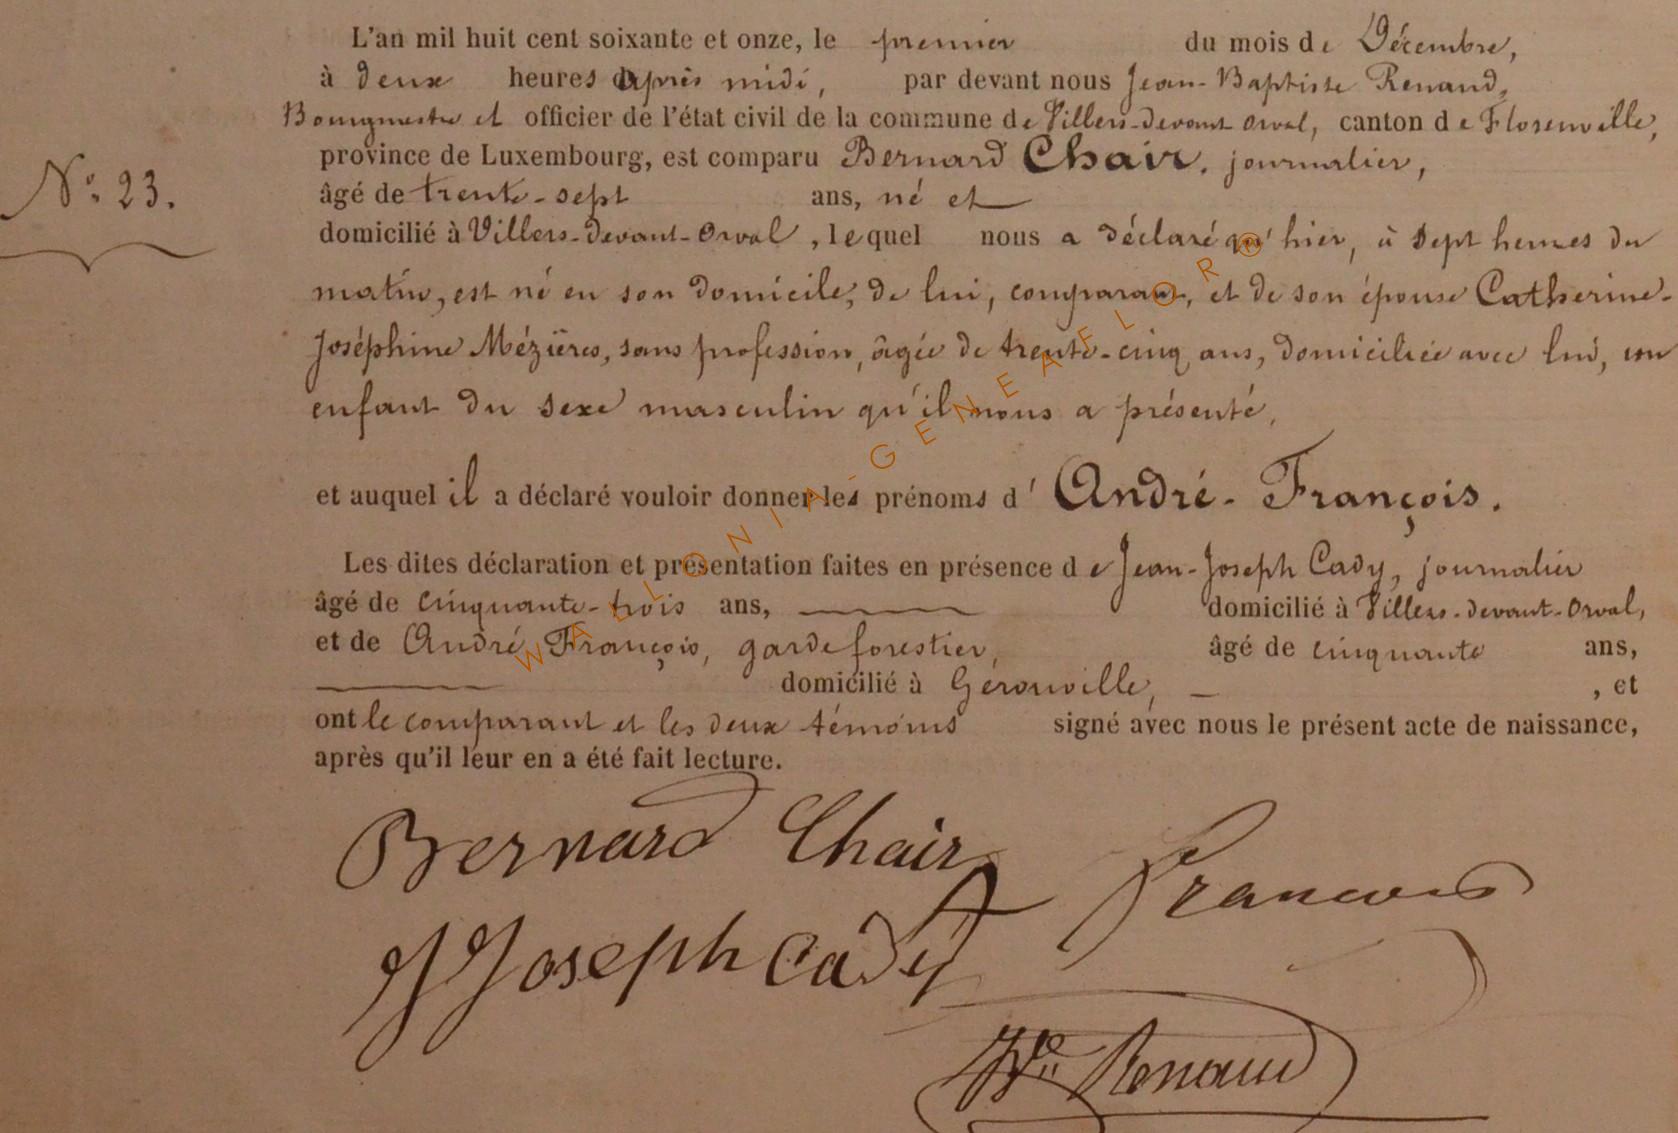 L'an mil huit cent soixante et onze, le premier du mois de Décembre,
à deux heures après midi, par devant nous Jean-Baptiste Renaud,
Bourgmestre et officier de l'état civil de la commune de Villers-devant-Orval, canton de Florenville,
province de Luxembourg, est comparu Bernard Chair, journalier,
N° 23.
âgé de trente-sept ans, né et
domicilié à Villers-devant-Orval, lequel nous a déclaré qu'hier, à sept heures du
matin, est né en son domicile, de lui, comparant, et de son épouse Catherine-
Joséphine Mézières, sans profession, âgée de trente-cinq ans, domiciliée avec lui, un
enfant du sexe masculin qu'il nous a présenté,
et auquel il a déclaré vouloir donner les prénoms d'André-François.
Les dites déclaration et présentation faites en présence de Jean-Joseph Cady, journalier
âgé de cinquante-trois ans, domicilié à Villers-devant-Orval,
et de André François, garde forestier, âgé de cinquante ans,
domicilié à Gérouville, , et
ont le comparant et les deux témoins signé avec nous le présent acte de naissance,
après qu'il leur en a été fait lecture.
Bernard Chair
A Francois
JJoseph Cady
Renaud
WALLONIA-GENEAFLOR®